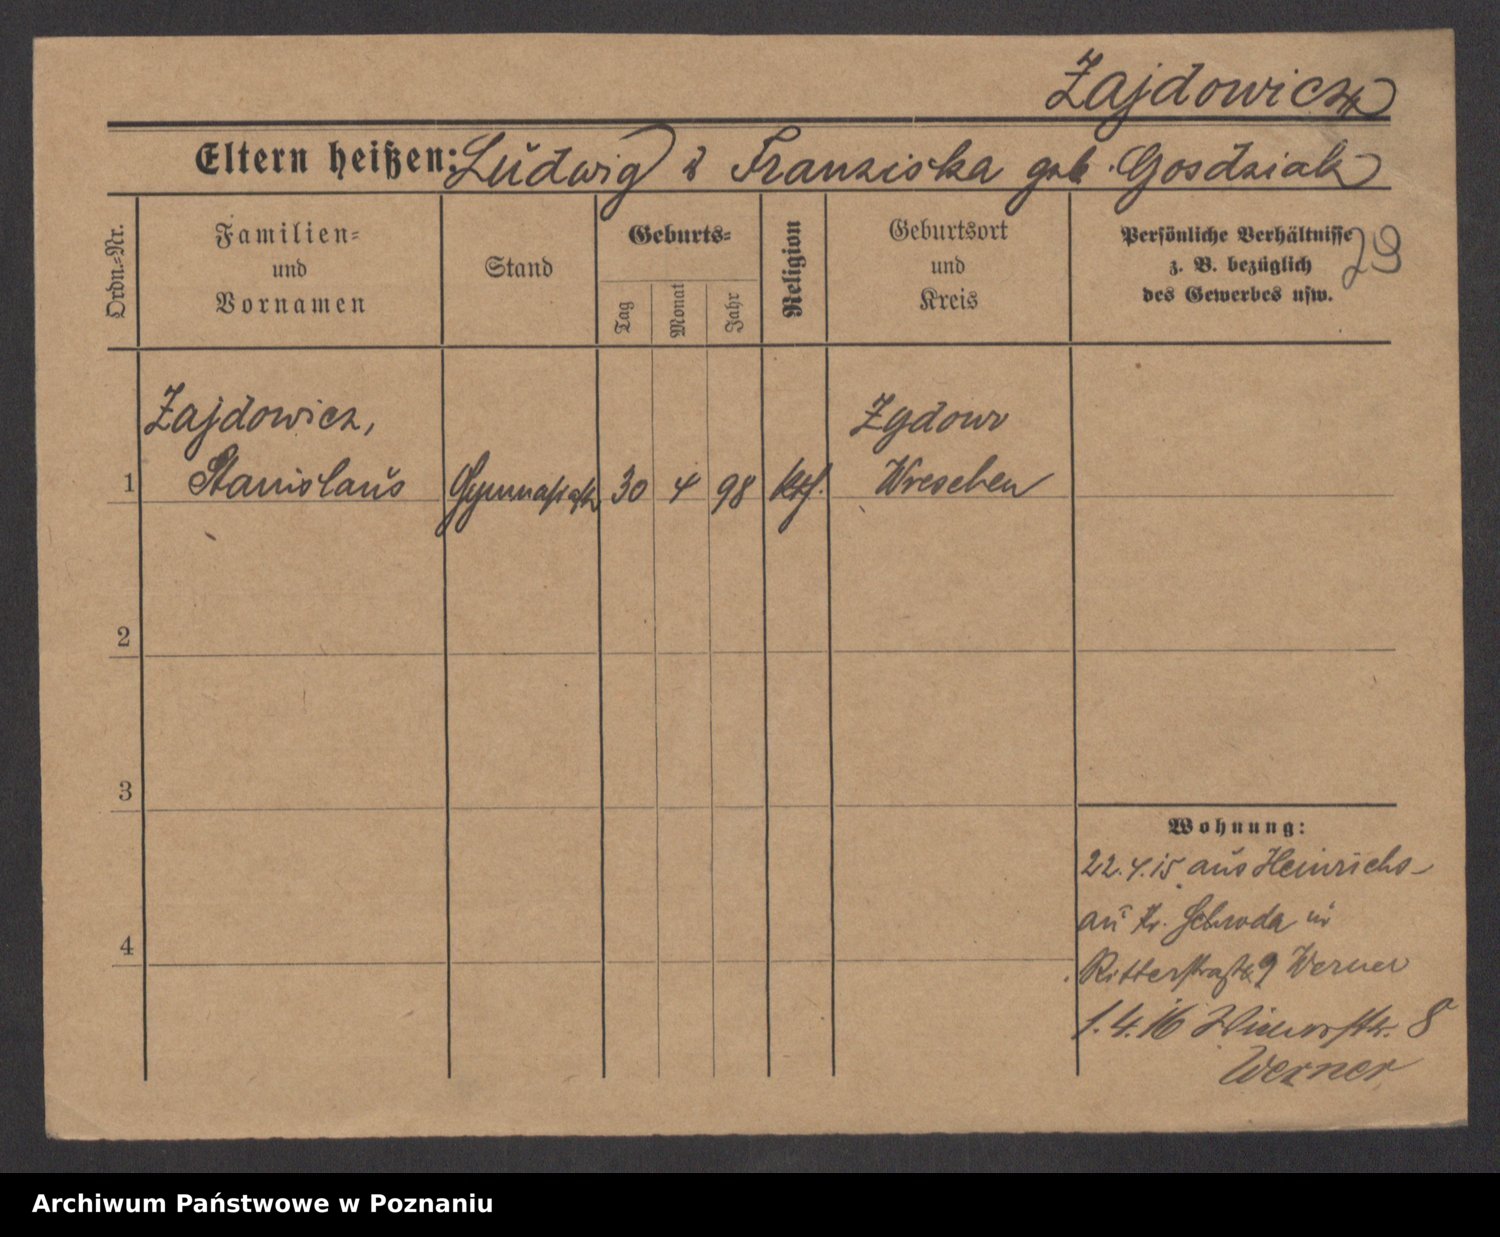 Zajdowicz
Eltern heißen: Ludwig u Franziska geb. Gosdziak
Ordn.-Nr.
Familien-
und
Vornamen
Stand
Geburts-
Tag
Monat
Jahr
Religion
Geburtsort
und
Kreis
Persönliche Verhältnisse
z. B. bezüglich
des Gewerbes usw.
29
Zajdowicz,
Zydowo
1 Stanislaus Gymnasiast 30 4 98 kth. Wreschen
2
3
4
Wohnung:
22.4.15 aus Heinrichs-
au Kr. Schroda in
Ritterstraße 9 Werner
1.4.16 8
Werner
Archiwum Państwowe w Poznaniu